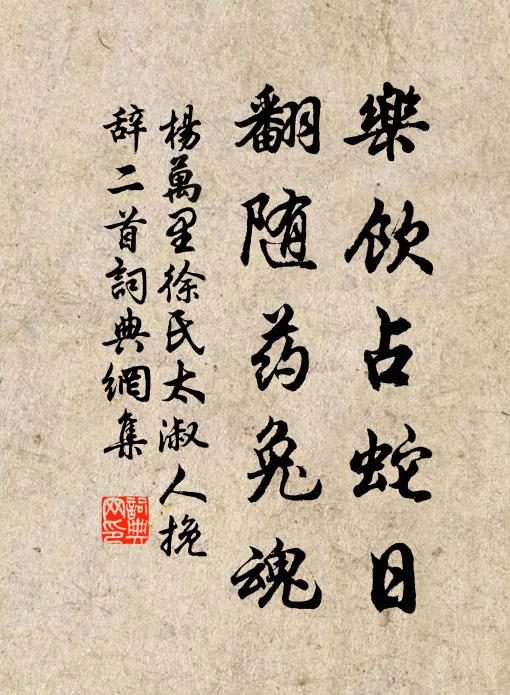 樂飲占蛇日
翻随药兔魂
楊萬里徐氏太淑人挽
辞二首詞典網集
詞典网印